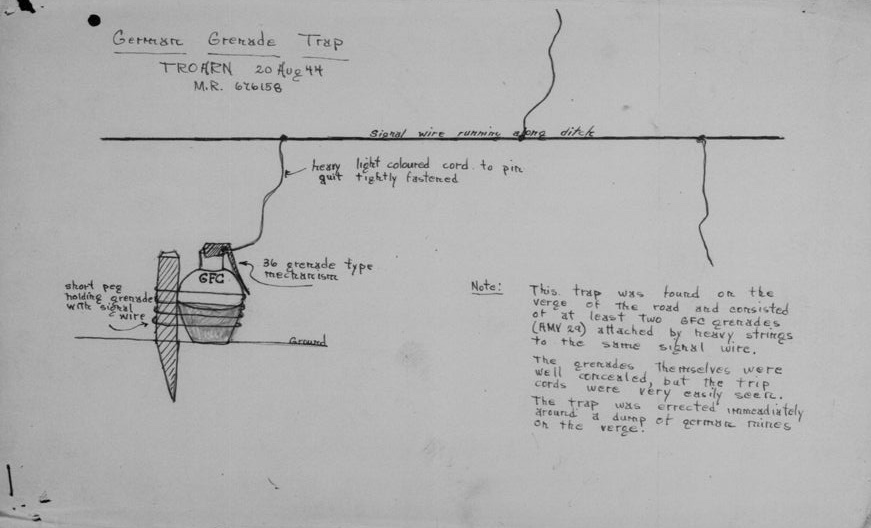 German Grenade Trap
TROARN 20 Aug 44
M.R. 676158
Signal wire running along ditch
heavy light coloured cord to pin
quit tightly fastened
36 grenade type
mechanism
GFC
short peg
holding grenade
with signal
wire
Ground
Note:
This trap was found on the
verge of the road and consisted
of at least two GFC grenades
(AMV 29) attached by heavy strings
to the same signal wire.
The grenades themselves were
well concealed, but the trip
cords were very easily seen.
The trap was errected immeadiately
around a dump of german mines
on the verge.